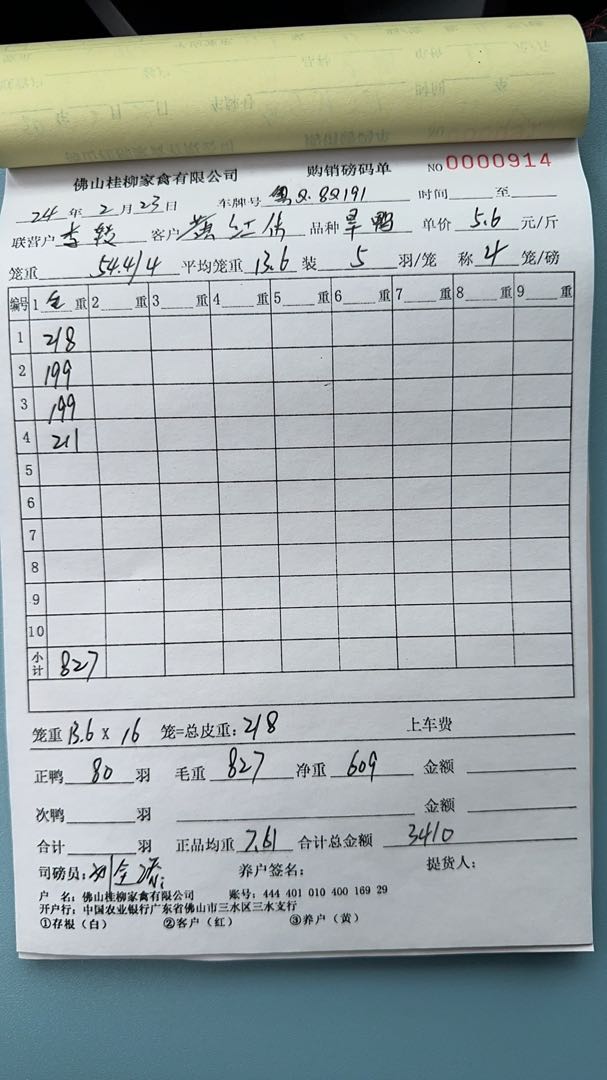 佛山桂柳家禽有限公司 购销磅码单 NO 0000914
24 年 2 月 23 日 车牌号 粤Q.8Q191 时间 至
联营户 李 客户 黄红伟 品种 旱鸭 单价 5.6 元/斤
笼重 54.4/4 平均笼重 13.6 装 5 羽/笼 称 4 笼/磅
编号 1 全 重 2 重 3 重 4 重 5 重 6 重 7 重 8 重 9 重
1 218
2 199
3 199
4 211
5
6
7
8
9
10
小计 827
笼重 13.6 x 16 笼=总皮重: 218 上车费
正鸭 80 羽 毛重 827 净重 609 金额
次鸭 羽 金额
合计 羽 正品均重 7.61 合计总金额 3410
司磅员: 养户签名: 提货人:
户 名: 佛山桂柳家禽有限公司 账号: 444 401 010 400 169 29
开户行: 中国农业银行广东省佛山市三水区三水支行
①存根(白) ②客户(红) ③养户(黄)